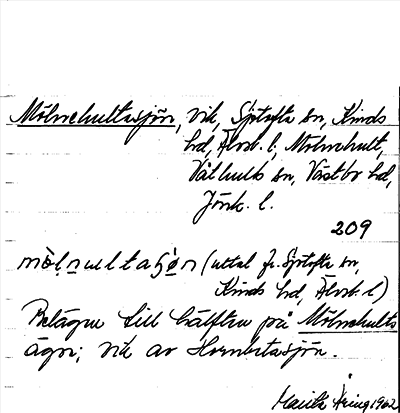 Mölnehultasjön, vik, Sjötofta sn, Kinds
hd, Älvsb. l, Mölnehult,
Vålhults sn, Västbo hd,
Jönk. l.
209
(uttal fr. Sjötofta sn,
Kinds hd, Älvsb. l)
Belägen till hälften på Mölnehults
ägor; vik av Hornbetasjön.
1962